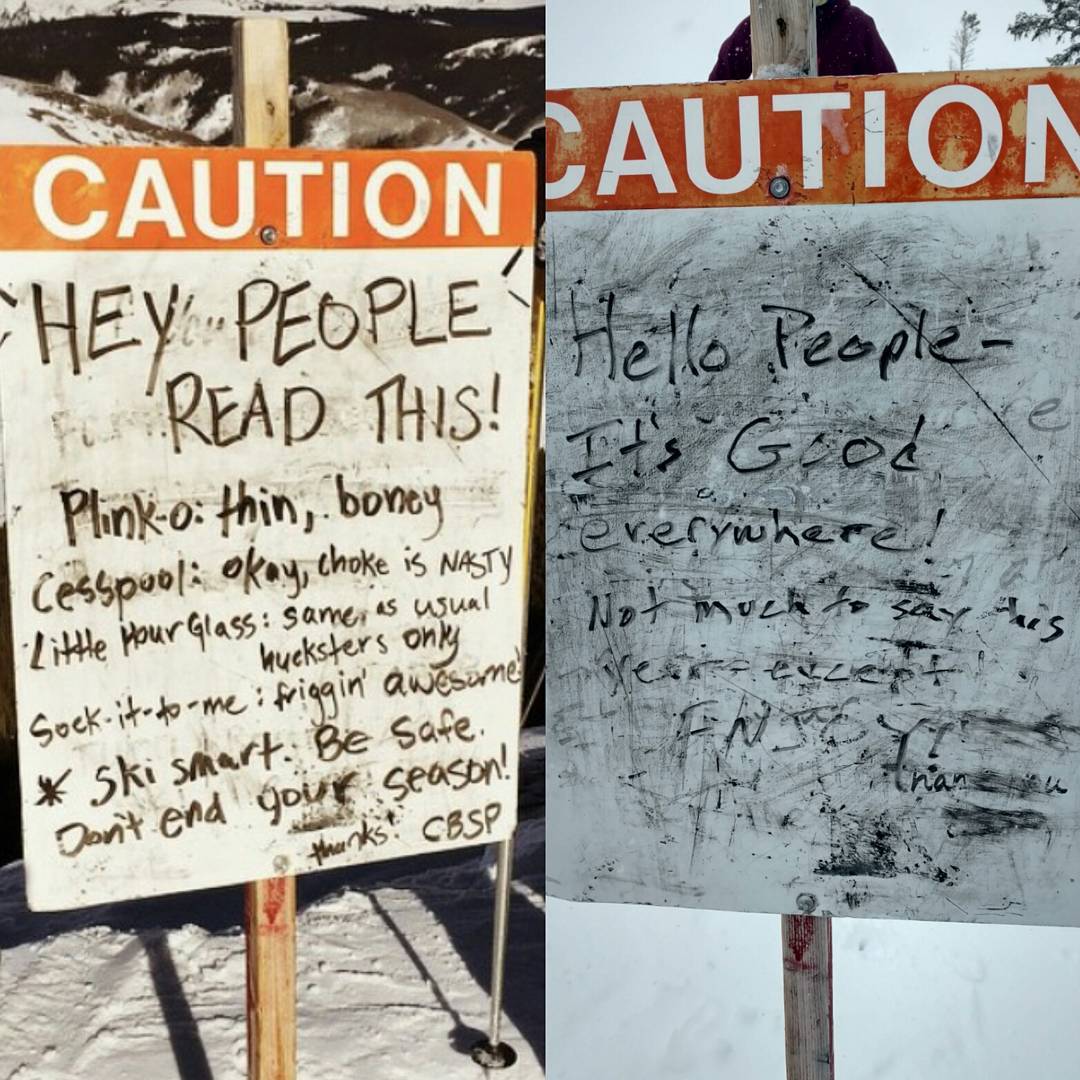 CAUTION
HEY PEOPLE
READ THIS!
Plink-o: thin, boney
Cesspool: okay, choke is NASTY
Little HourGlass: same, as usual
hucksters only
Sock-it-to-me: friggin' awesome!
* Ski smart. Be safe.
Don't end your season!
thanks! CBSP
CAUTION
Hello People-
It's Good
everywhere!
Not much to say this
year - except!
ENJOY!